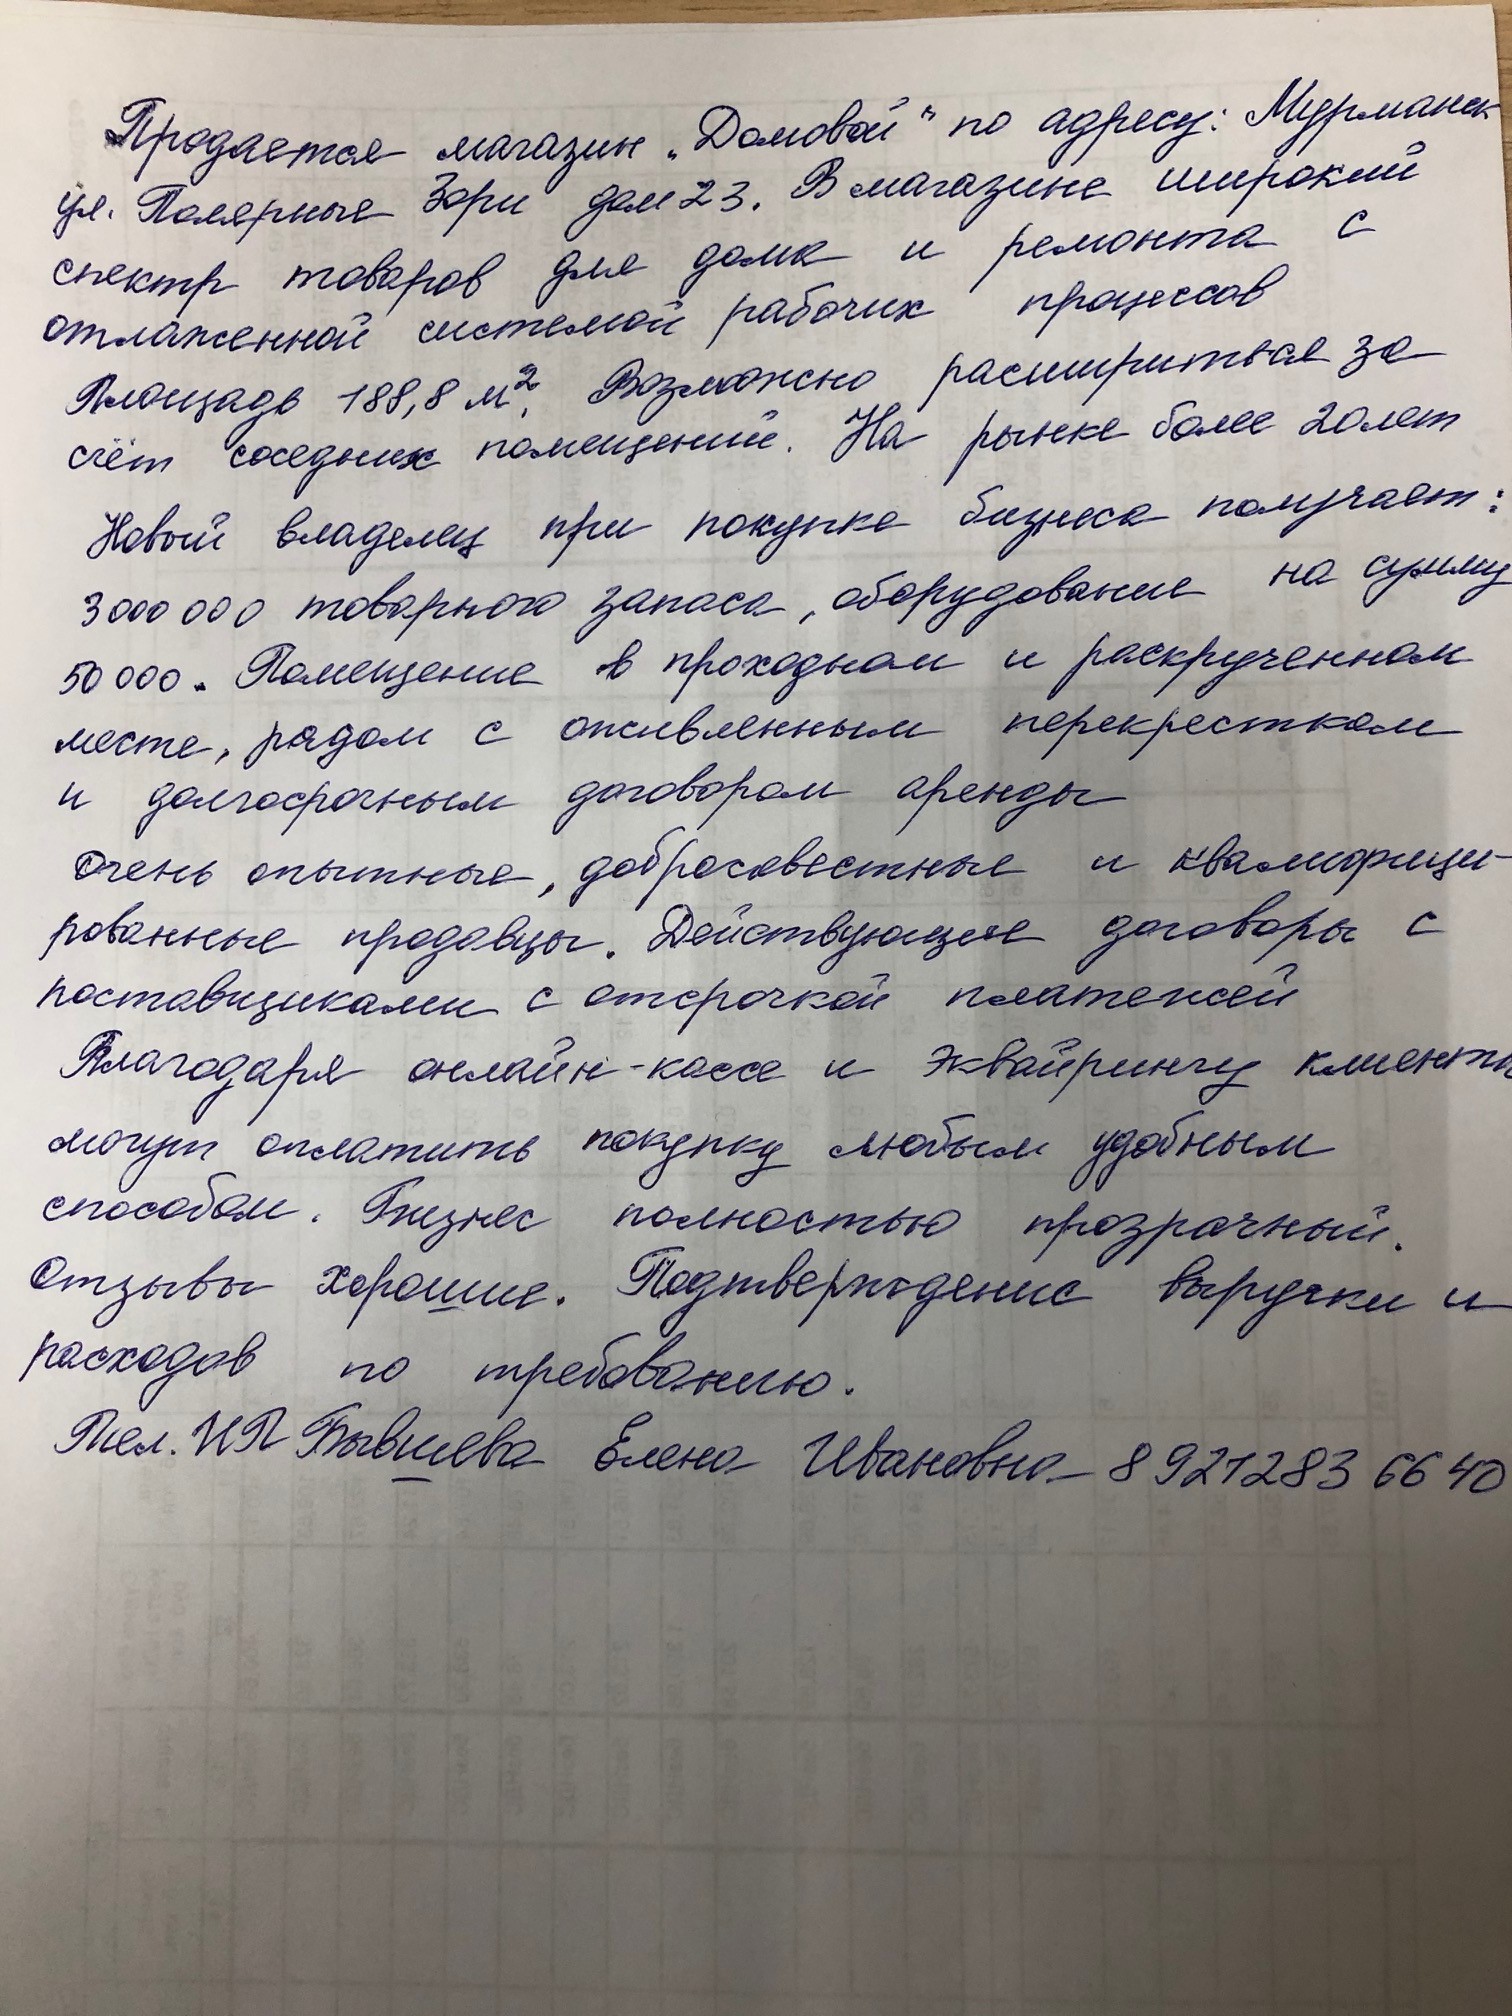 Продается магазин „Домовой" по адресу: Мурманск
ул. Полярные Зори дом 23. В магазине широкий
спектр товаров для дома и ремонта с
отлаженной системой рабочих процессов
Площадь 188,8 м². Возможно расшириться за
счёт соседних помещений. На рынке более 20 лет
Новый владелец при покупке бизнеса получает:
3 000 000 товарного запаса, оборудование на сумму
50 000. Помещение в проходном и раскрученном
месте, рядом с оживленным перекрестком
и долгосрочным договором аренды
Очень опытные, добросовестные и квалифици-
рованные продавцы. Действующие договоры с
поставщиками с отсрочкой платежей
Благодаря онлайн-кассе и эквайрингу клиенты
могут оплатить покупку любым удобным
способом. Бизнес полностью прозрачный.
Отзывы хорошие. Подтверждение выручки и
расходов по требованию.
Тел. ИП Бывшева Елена Ивановна 8 921 283 66 40